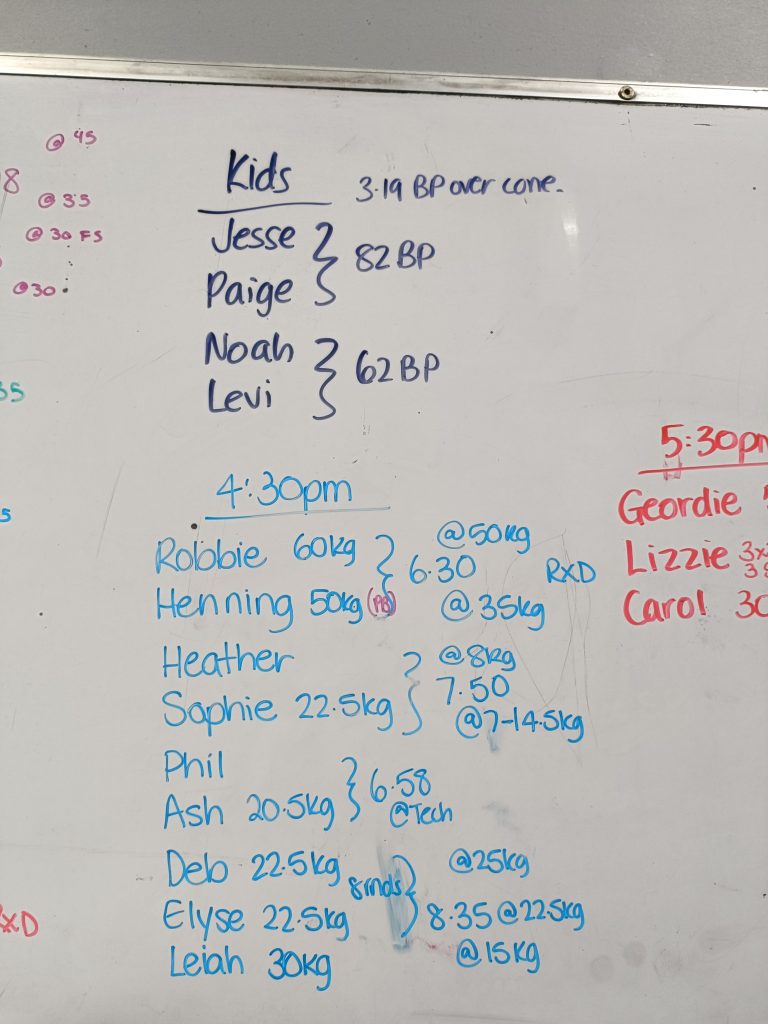 @ 45
8
@ 35
@ 30 FS
@30
Kids
3.19 BP over cone.
Jesse
Paige
82 BP
Noah
Levi
62 BP
4:30pm
Robbie 60kg
@50kg
6.30
RXD
Henning 50kg (PB)
@ 35kg
Heather
@8kg
7.50
Sophie 22.5kg
@7-14.5kg
Phil
Ash 20.5kg
6.58
@Tech
Deb 22.5kg
8rnds
@25kg
Elyse 22.5kg
8.35 @22.5kg
Leiah 30kg
@15kg
5:30pm
Geordie
Lizzie
Carol 30
RXD